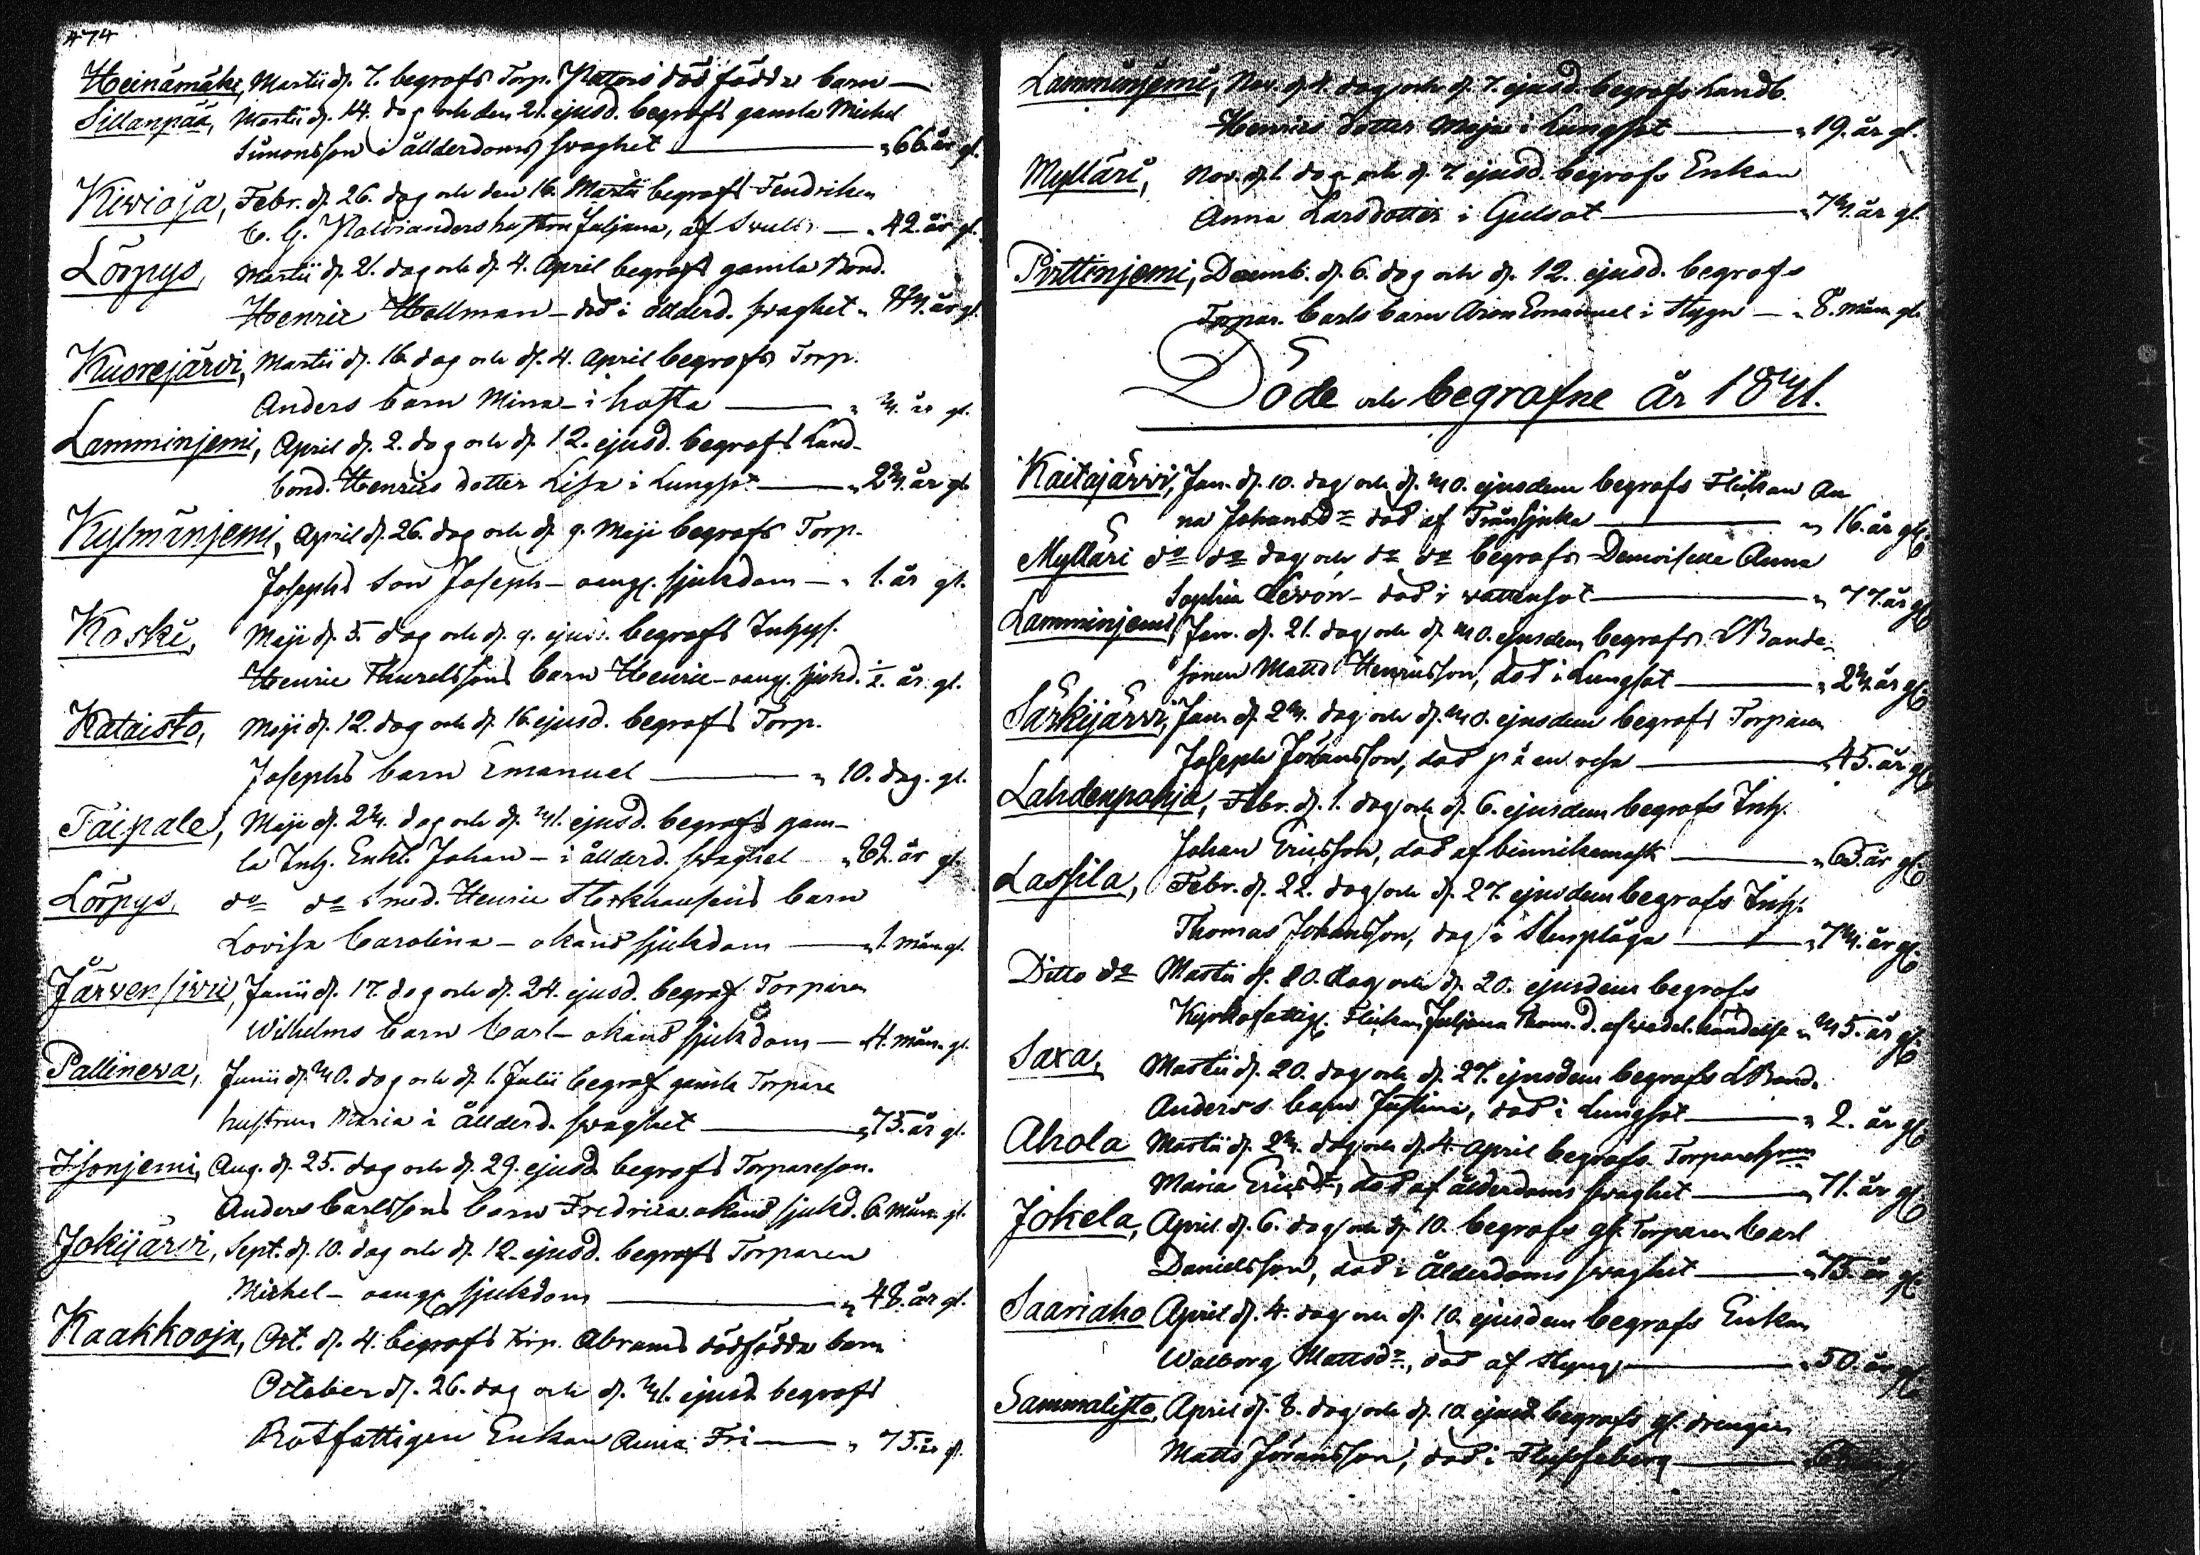 474
Heinämäki, Martii d. 7. begrofs Torp. dödfödda barn —
Sillanpää, Martii d. 14. dog och den 21. ejusd. begrofs gamla Michel
Simonsson i ållderdoms swaghet — " 66. år gl.
Kiwioja, Febr. d. 26. dog och den 16. Martii begrofs Fendriken
C. G. hustru Juljana, af — " 42. år gl.
Lörpys, Martii d. 21. dog och d. 4. April begrofs gamla Bond.
Henric Hallman — död i ållderd. swaghet " år gl.
Kuorejärvi, Martii d. 16. dog och d. 4. April begrofs Torp.
Anders barn Mina — i hosta — " 3. år gl.
Lamminjemi, April d. 2. dog och d. 12. ejusd. begrofs Land-
bond. Henrics dotter Lisa i Lungsot — " 23. år gl.
Kylmänjemi, April d. 26. dog och d. 9. Maji begrofs Torp.
Josephs son Joseph — oang. sjukdom — " 1. år gl.
Koski, Maji d. 5. dog och d. 9. ejusd. begrofs Inhys.
Henric Thurelssons barn Henric — oang. sjukd. ½. år gl.
Kataisto, Maji d. 12. dog och d. 16. ejusd. begrofs Torp.
Josephs barn Emanuel — " 10. dag. gl.
Taipale, Maji d. 23. dog och d. 31. ejusd. begrofs gam-
la Inh. Enkl. Johan — i ållderd. swaghet — " 82. år gl.
Lörpys, do do Smed. Henric barn
Lovisa Carolina — okänd sjukdom — " 1. mån gl.
Järvensivu, Junii d. 17. dog och d. 24. ejusd. begrof Torparen
Wilhelms barn Carl — okänd sjukdom — " 4. mån. gl.
Pallinewa, Junii d. 30. dog och d. 1. Julii begrof gamla Torpare
hustrun Maria i Ållderd. swaghet — " 75. år gl.
Isonjemi, Aug. d. 25. dog och d. 29. ejusd. begrofs Torpareson.
Anders Carlssons barn Fredrica okänd sjukd. 6. mån. gl.
Jokijärvi, Sept. d. 10. dog och d. 12. ejusd. begrofs Torparen
Michel — oang. sjukdom — " 48. år gl.
Kaakkooja, Oct. d. 4. begrofs Torp. Abrams dödfödda barn
October d. 26. dog och d. 31. ejusd. begrofs
Rotfattigen Enkan Anna Fri — " 75. år gl.
Lamminjemi, Nov. d. 4. dog och d. 7. ejusd. begrofs Landb.
Henrics dotter Maja i Lungsot — " 19. år gl.
Mylläri, Nov. d. 1. dog och d. 7. ejusd. begrofs Enkan
Anna Larsdotter i Gulsot — " 73. år gl.
Pirttinjemi, Decemb. d. 6. dog och d. 12. ejusd. begrofs
Torpar. Carls barn Aron Emanuel i Slagn — " 8. mån gl.
Döde och begrafne år 1831.
Kaitajärwi, Jan. d. 10. dog och d. 30. ejusdem begrofs Flickan An
na Johansdr död af Trånsjuka — " 16. år gl.
Myllari do do dog och do do begrofs Demoiselle Anna
Sophia Levón — död i wattusot — " 77. år gl.
Lamminjemi, Jan. d. 21. dog och d. 30. ejusdem begrofs LBonde
sonen Matts Henricsson, död i Lungsot — " 23. år gl.
Särkijärvi, Jan. d. 23. dog och d. 30. ejusdem begrofs Torparen
Joseph Jöransson, död på en resa — " 45. år gl.
Lahdenpohja, Febr. d. 1. dog och d. 6. ejusdem begrofs Inh.
Johan Ericsson, död af binnikemask — " 65. år gl.
Lassila, Febr. d. 22. dog och d. 27. ejusdem begrofs Inh.
Thomas Johansson, dog i Stenplåga — " 73. år gl.
Ditto do Martii d. 10. dog och d. 20. ejusdem begrofs
Kyrkofattig. Flickan Juljana Thom. d. af wådel. händelse " 35. år gl.
Saxa, Martii d. 20. dog och d. 27. ejusdem begrofs LBond.
Anders's barn Justina, död i Lungsot — " 2. år gl.
Ahola Martii d. 23. dog och d. 4. April begrofs Torparehustrun
Maria Ericsdr, död af ålderdoms swaghet — " 71. år gl.
Jokela, April d. 6. dog och d. 10. begrofs gl. Torparen Carl
Danielsson, död i Ålderdoms swaghet — " 75. år gl.
Saariaho April d. 4. dog och d. 10. ejusdem begrofs Enkan
Walborg Mattsdr, död af Styng — " 50. år gl.
Sammalisto, April d. 8. dog och d. 10. ejusd. begrofs gl. drengen
Matts Jöransson, död i —